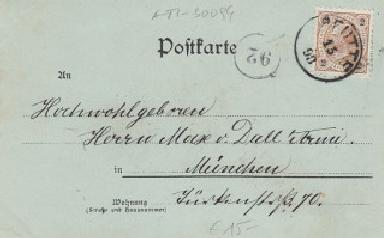 ATI-30094
Postkarte
92
REUTTE
15
98
2
An
Hochwohlgeboren
Herrn Max v. Dall'Armi.
in München
Wohnung
(Straße und Hausnummer)
Türkenstrß. 90.
€ 15-